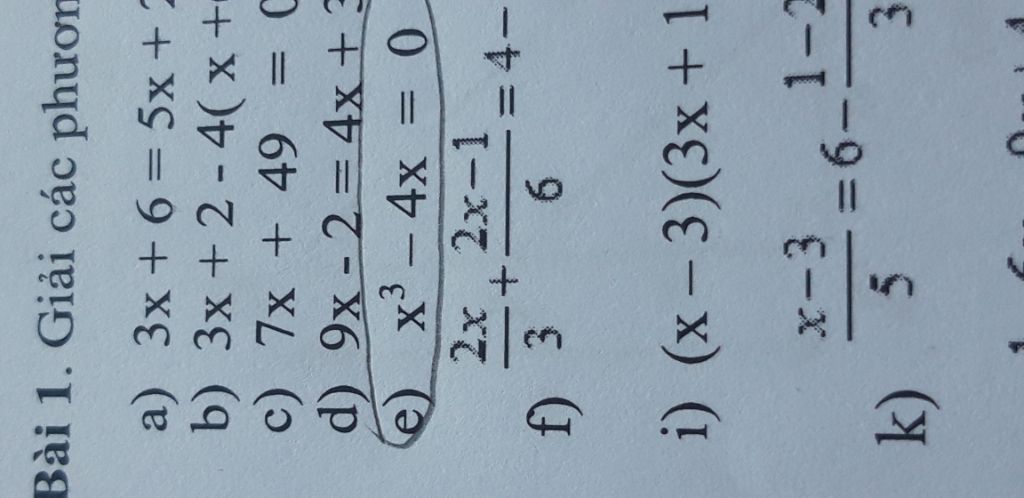 Bài 1. Giải các phươn
a) 3x + 6 = 5x +
b) 3x + 2 - 4( x +
c) 7x + 49 = 0
d) 9x - 2 = 4x + 3
e) x³ – 4x = 0
f) 2x/3 + (2x−1)/6 = 4 −
i) (x – 3)(3x + 1
k) (x−3)/5 = 6 − (1−2/3